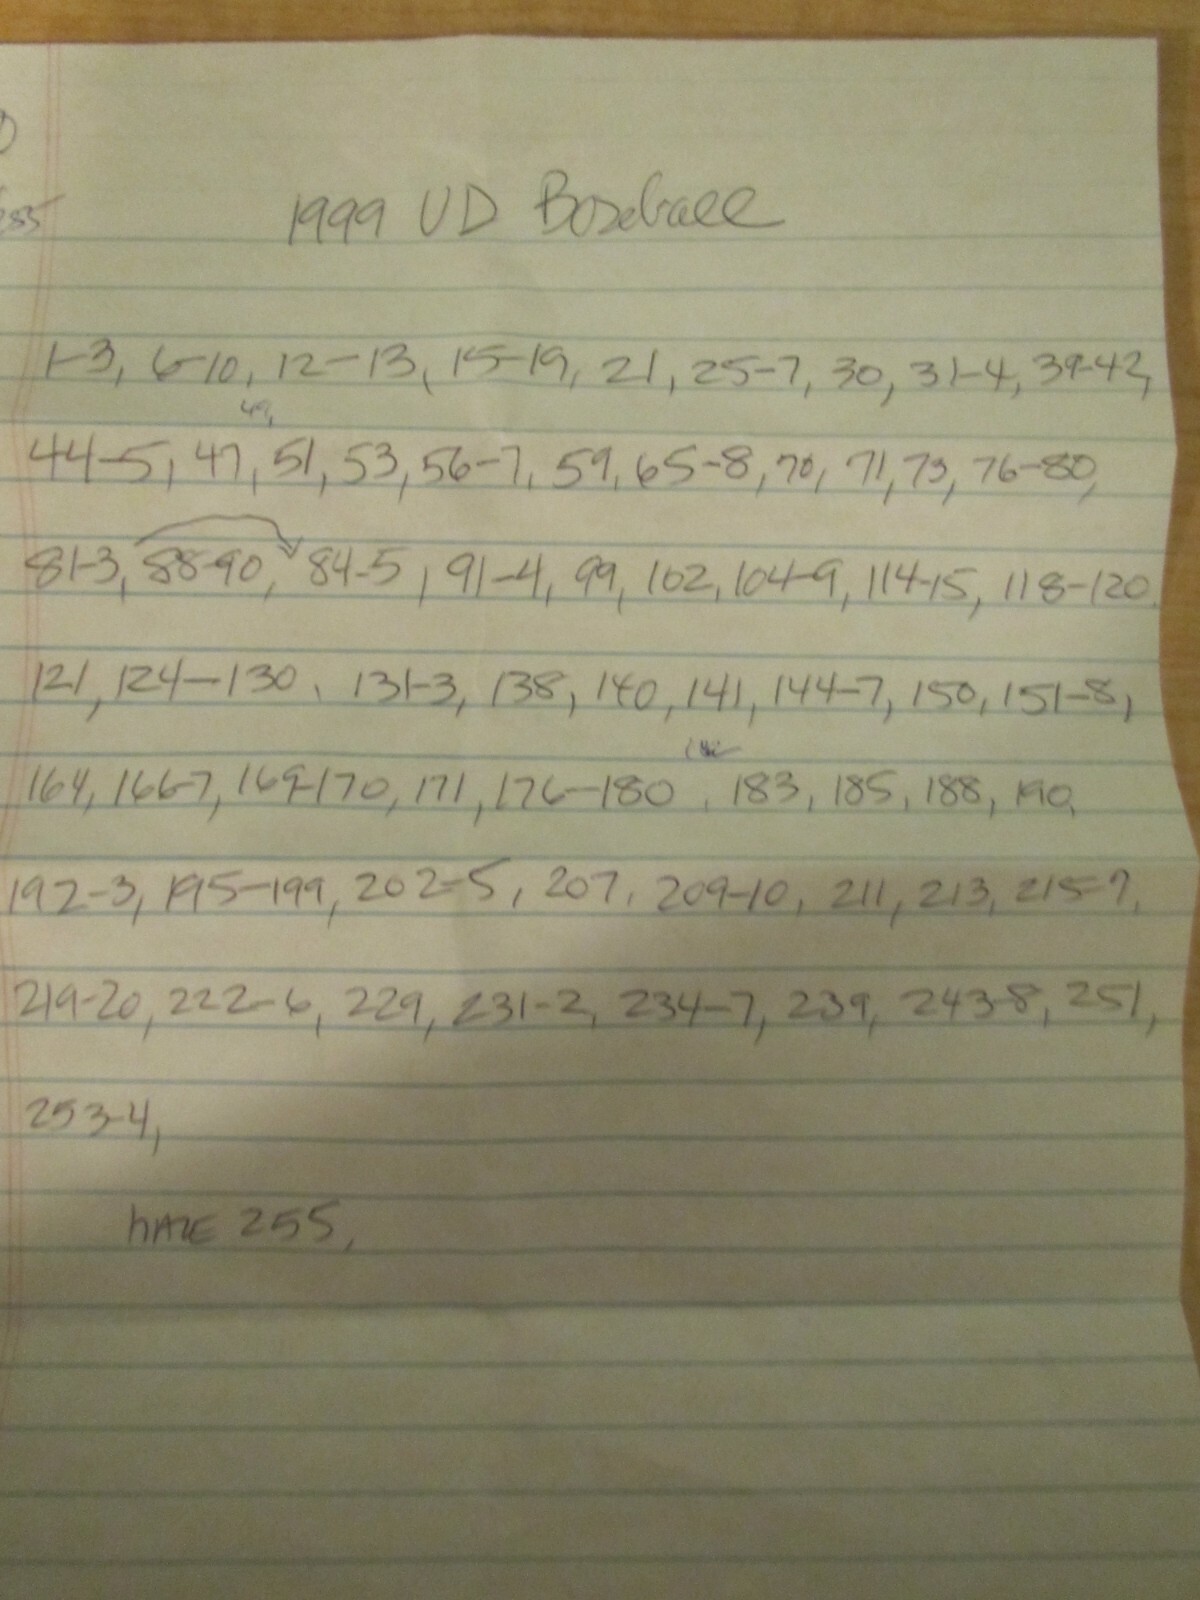 285
1999 UD Baseball
1-3, 6-10, 12-13, 15-19, 21, 25-7, 30, 31-4, 39-42,
49,
44-5, 47, 51, 53, 56-7, 59, 65-8, 70, 71, 73, 76-80,
81-3, 88-90, 84-5, 91-4, 99, 102, 104-9, 114-15, 118-120,
121, 124-130, 131-3, 138, 140, 141, 144-7, 150, 151-8,
164, 166-7, 169-170, 171, 176-180, 183, 185, 188, 190,
192-3, 195-199, 202-5, 207, 209-10, 211, 213, 215-7,
219-20, 222-6, 229, 231-2, 234-7, 239, 243-8, 251,
253-4,
HAVE 255,